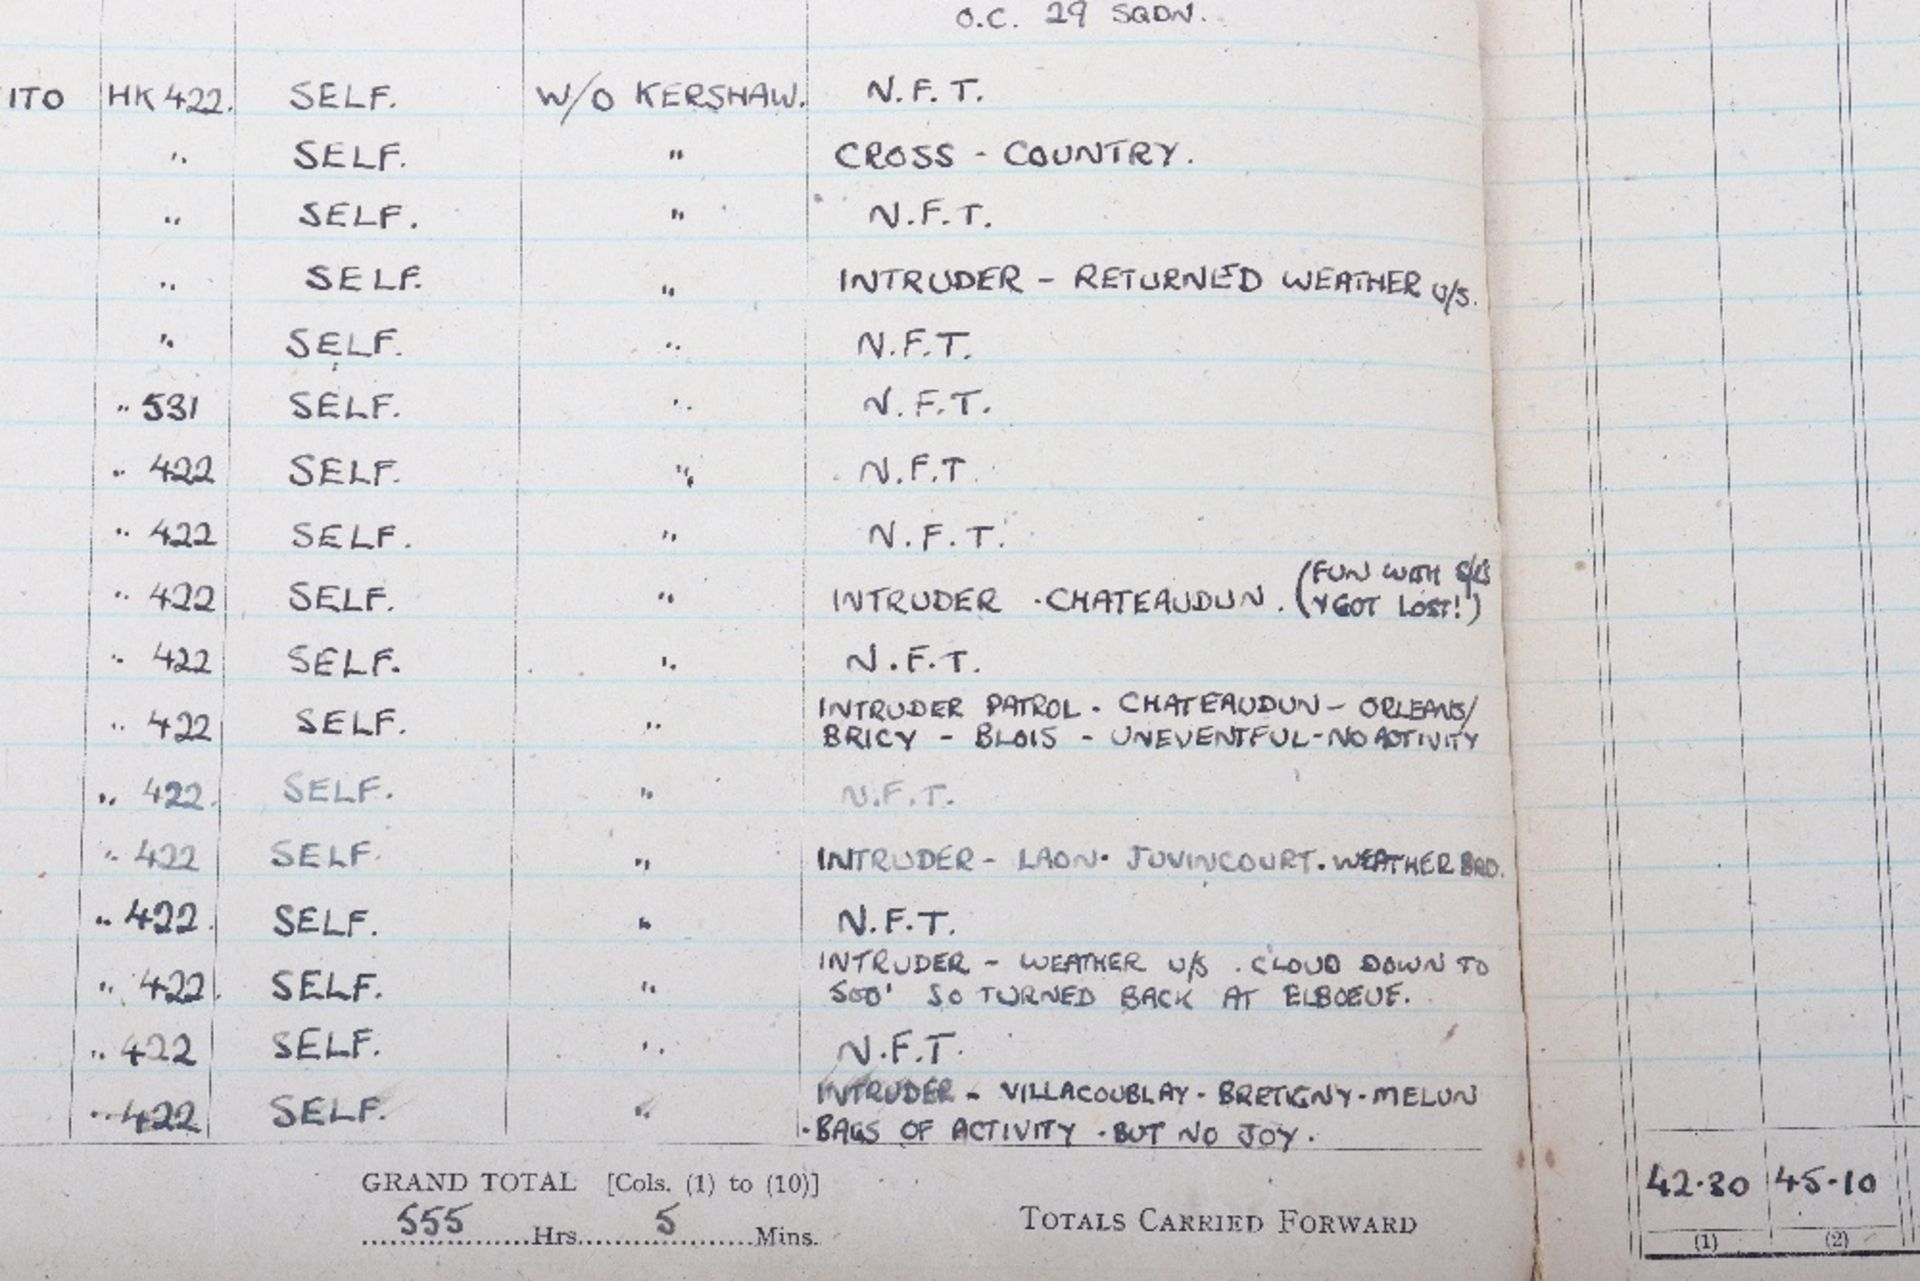 O.C. 29 SQDN.
ITO HK 422. SELF. W/O KERSHAW. N.F.T.
" SELF. " CROSS - COUNTRY.
" SELF. " N.F.T.
" SELF. " INTRUDER - RETURNED WEATHER U/S.
" SELF. " N.F.T.
" 531 SELF. " N.F.T.
" 422 SELF. " N.F.T
" 422 SELF. " N.F.T.
" 422 SELF. " INTRUDER - CHATEAUDUN. (FUN WITH S/L'S
& GOT LOST!)
" 422 SELF. " N.F.T.
" 422 SELF. " INTRUDER PATROL - CHATEAUDUN - ORLEANS/
BRICY - BLOIS - UNEVENTFUL - NO ACTIVITY
" 422. SELF. " N.F.T.
" 422 SELF. " INTRUDER - LAON - JUVINCOURT. WEATHER BAD.
" 422. SELF. " N.F.T.
" 422. SELF. " INTRUDER - WEATHER U/S. CLOUD DOWN TO
500' SO TURNED BACK AT ELBOEUF.
" 422 SELF. " N.F.T.
" 422 SELF. " INTRUDER - VILLACOUBLAY - BRETIGNY - MELUN
- BAGS OF ACTIVITY - BUT NO JOY.
GRAND TOTAL [Cols. (1) to (10)]
555 Hrs. 5 Mins.
TOTALS CARRIED FORWARD
42.30 45.10
(1) (2)